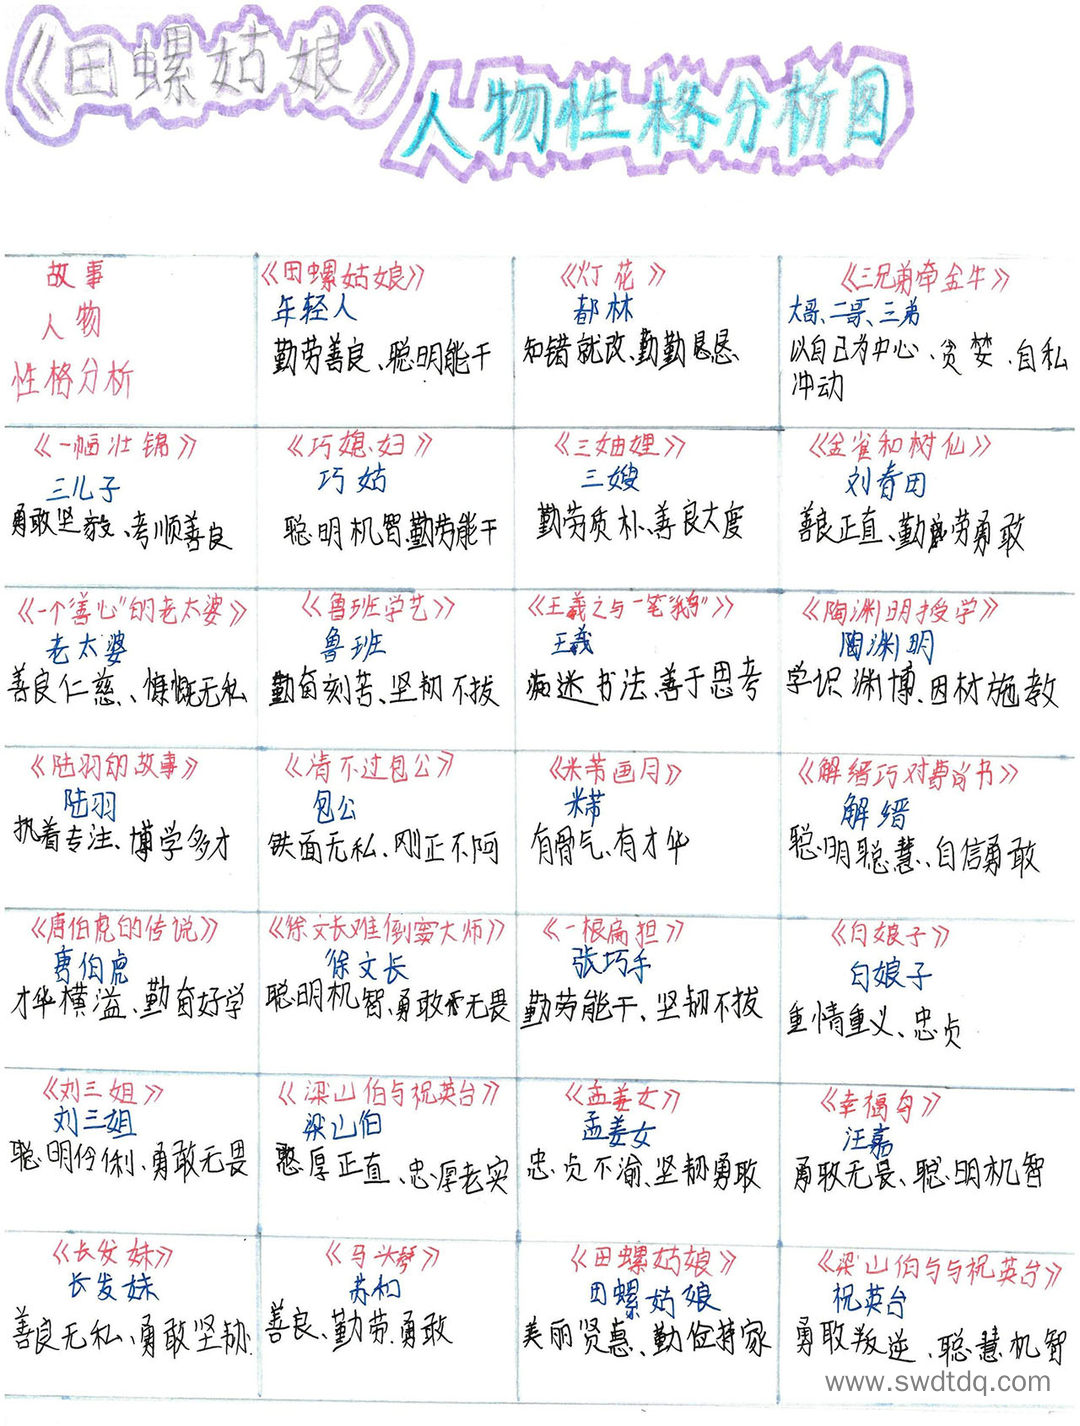 《田螺姑娘》
人物性格分析图
故事
人物
性格分析
《田螺姑娘》
年轻人
勤劳善良、聪明能干
《灯花》
都林
知错就改、勤勤恳恳
《三兄弟牵金牛》
大哥、二哥、三弟
以自己为中心、贪婪、自私
冲动
《一幅壮锦》
三儿子
勇敢坚毅、孝顺善良
《巧媳妇》
巧姑
聪明机智、勤劳能干
《三妯娌》
三嫂
勤劳质朴、善良大度
《金雀和树仙》
刘春田
善良正直、勤劳勇敢
《一个“善心”的老太婆》
老太婆
善良仁慈、慷慨无私
《鲁班学艺》
鲁班
勤奋刻苦、坚韧不拔
《王羲之与一笔“鹅”》
王羲
痴迷书法、善于思考
《陶渊明授学》
陶渊明
学识渊博、因材施教
《陆羽的故事》
陆羽
执着专注、博学多才
《清不过包公》
包公
铁面无私、刚正不阿
《米芾画月》
米芾
有骨气、有才华
《解缙巧对曹尚书》
解缙
聪明聪慧、自信勇敢
《唐伯虎的传说》
唐伯虎
才华横溢、勤奋好学
《徐文长难倒窦大师》
徐文长
聪明机智、勇敢无畏
《一根扁担》
张巧手
勤劳能干、坚韧不拔
《白娘子》
白娘子
重情重义、忠贞
《刘三姐》
刘三姐
聪明伶俐、勇敢无畏
《梁山伯与祝英台》
梁山伯
憨厚正直、忠厚老实
《孟姜女》
孟姜女
忠贞不渝、坚韧勇敢
《幸福鸟》
汪嘉
勇敢无畏、聪明机智
《长发妹》
长发妹
善良无私、勇敢坚韧
《马头琴》
苏和
善良、勤劳、勇敢
《田螺姑娘》
田螺姑娘
美丽贤惠、勤俭持家
《梁山伯与与祝英台》
祝英台
勇敢叛逆、聪慧机智
www.swdtdq.com